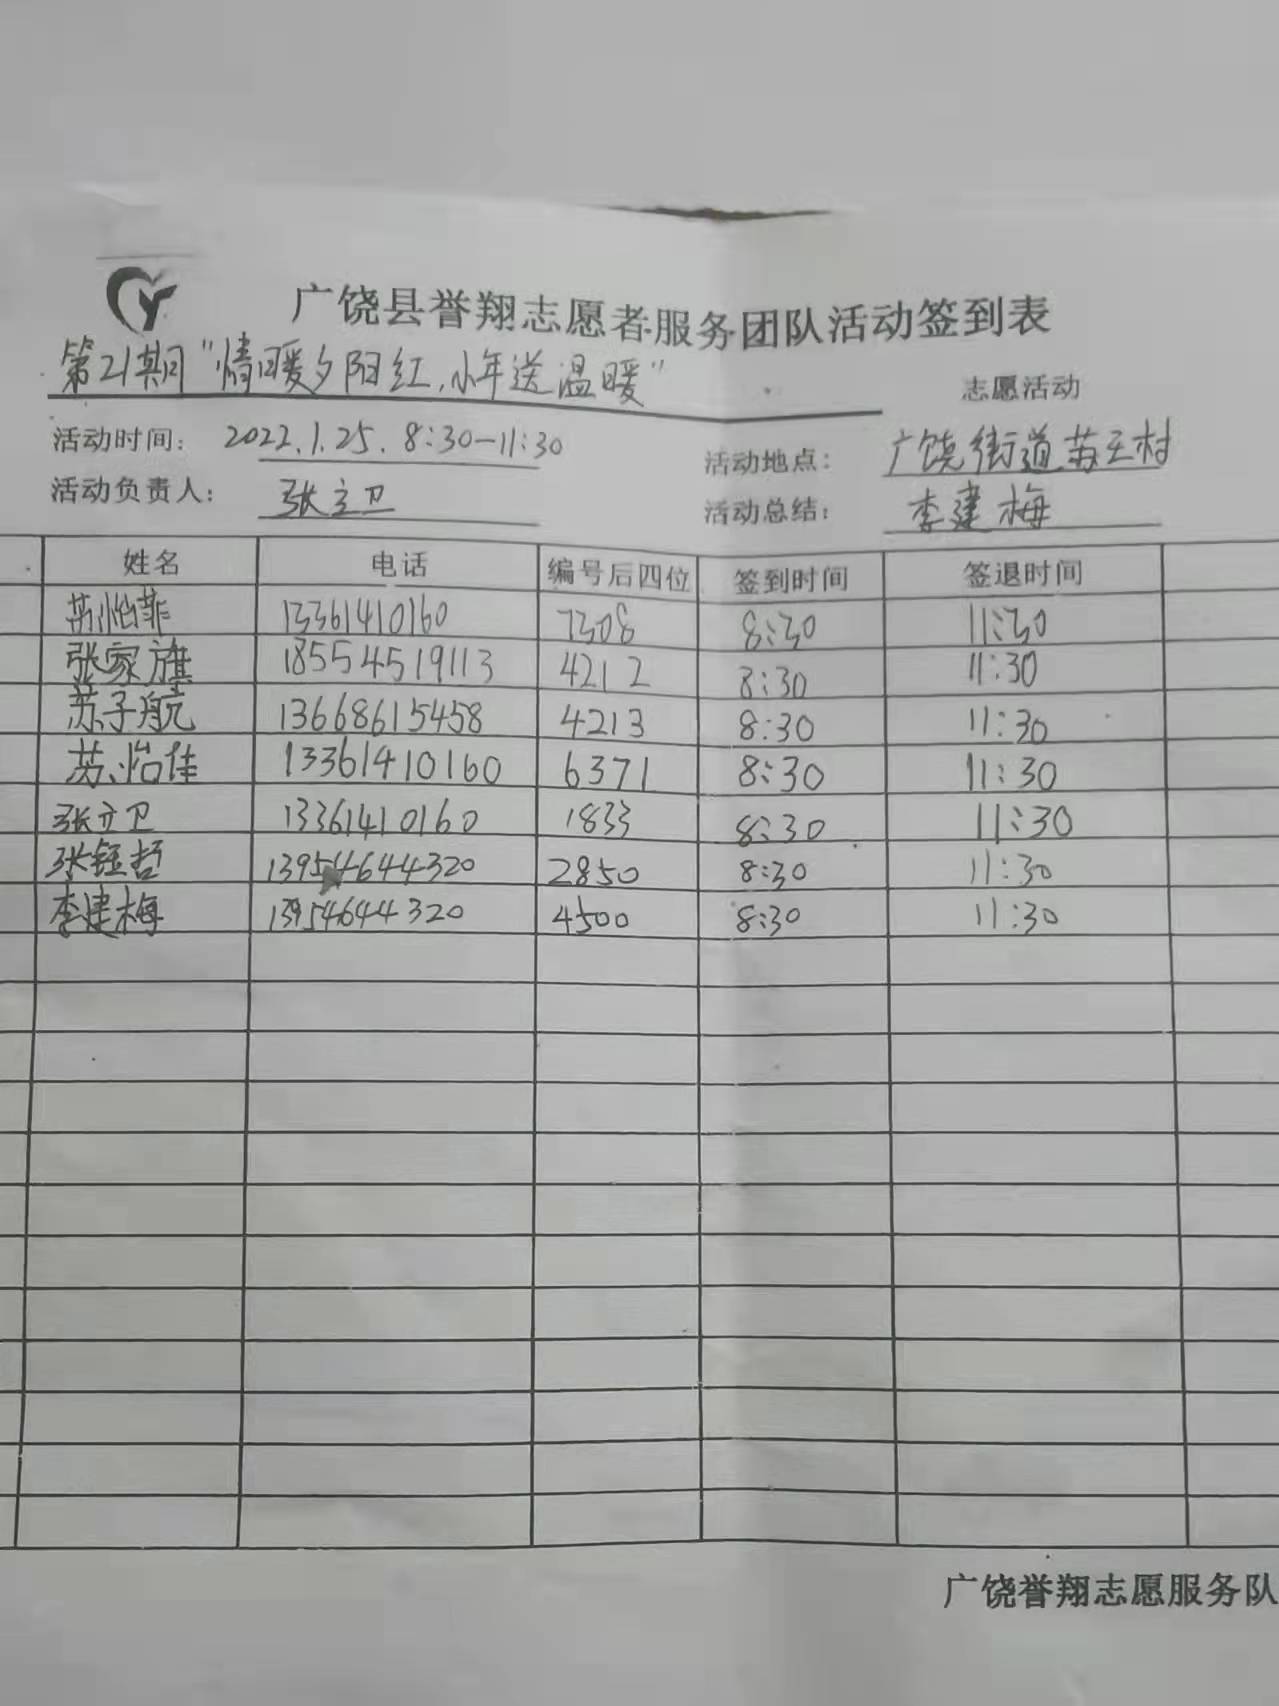 广饶县誉翔志愿者服务团队活动签到表
第21期"情暖夕阳红,小年送温暖" 志愿活动
活动时间: 2022.1.25. 8:30-11:30 活动地点: 广饶街道苏王村
活动负责人: 张立卫 活动总结: 李建梅
姓名 电话 编号后四位 签到时间 签退时间
苏怡菲 13361410160 7308 8:30 11:30
张家旗 18554519113 4212 8:30 11:30
苏子航 13668615458 4213 8:30 11:30
苏怡佳 13361410160 6371 8:30 11:30
张立卫 13361410160 1833 8:30 11:30
张钰哲 13954644320 2850 8:30 11:30
李建梅 13954644320 4500 8:30 11:30
广饶誉翔志愿服务队